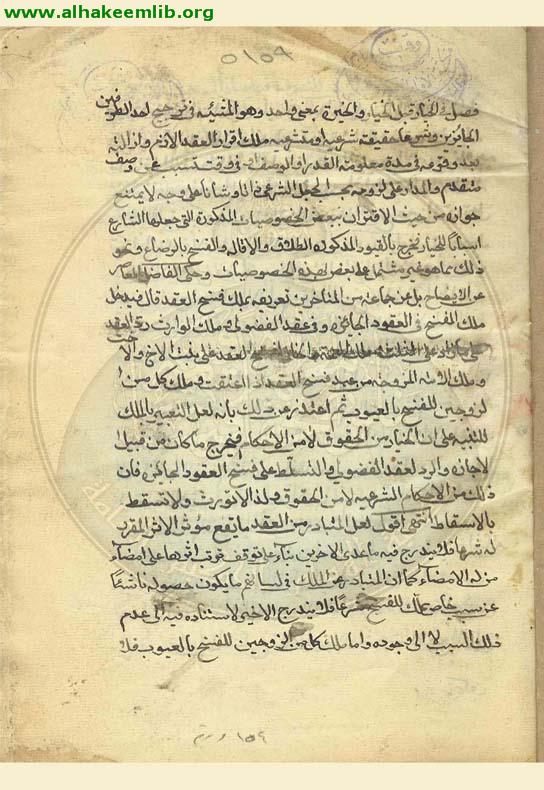 www.alhakeemlib.org
٥١٥٩
فصل في الخيار قيل الخيار والخيرة بمعنى واحد وهو المشيئه في ترجيح احد الطرفين
الجائزين وشرعا حقيقته شرعيه او متشرعيه ملك اقرار العقد اللازم وازالته
بعد وقوعه في مدة معلومه القدر او الوصف او في وقت تسبب عن وصف
متقدم والمدار على لزومه بحسب الجعل الشرعي ذاتا وشانا على وجه لا يمتنع
جوازه من حيث الاقتران ببعض الخصوصيات المذكورة التي جعلها الشارع
اسبابا للخيار فخرج بالقيود المذكوره الطلاق والاقاله والفسخ بالرضاع ونحو
ذلك مما هو غير مشتمل على بعض هذه الخصوصيات وحكى الفاضل المعاصر
عن الايضاح بل عن جماعة من المتاخرين تعريفه بملك فسخ العقد قال فيدخل
ملك الفسخ في العقود الجائزه وفي عقد الفضولي وملك الوارث رد العقد
على ما زاد على الثلث العقد على بنت الاخ والاخت
وملك الامه المزوجه من عبد فسخ العقد اذا اعتقت وملك كل من ا
لزوجين للفسخ بالعيوب ثم اعتذر عن ذلك بانه لعل التعبير بالملك
للتنبيه على ان المناد من الحقوق لا من الاحكام فيخرج ما كان من قبيل ا
لاجازه والرد لعقد الفضولي والتسلط على فسخ العقود الجائزه فان
ذلك من الاحكام الشرعيه لا من الحقوق ولذا لا تورث ولا تسقط
بالاسقاط انتهى اقول لعل المتبادر من العقد ما يقع مؤثر الاثر المقرر
له شرعا فلا يندرج فيه ما عدى الاخرين بناء على توقف ترتب اثرها على امضاء
من له الامضاء كما ان المتبادر عن الملك في لسانهم ما يكون حصوله ناشئا
عن سبب خاص مملك للفسخ شرعا فلا يندرج الاخير لاستناده فيه الى عدم
ذلك السبب لا الى وجوده واما ملك كل من الزوجين للفسخ بالعيوب فلا